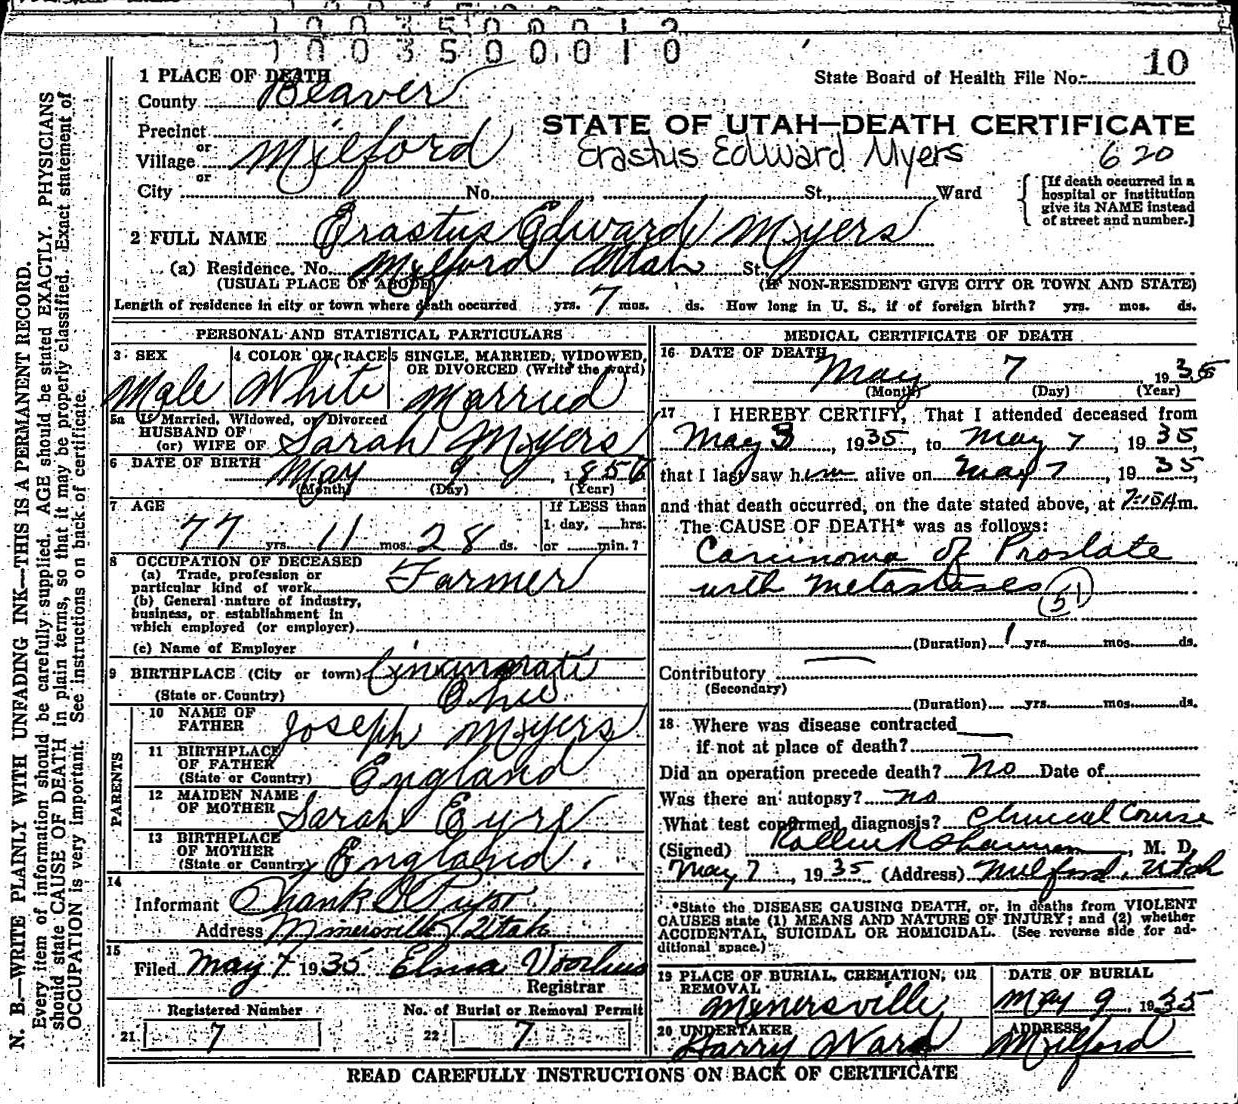 10035000010
1 PLACE OF DEATH
State Board of Health File No. 10
County Beaver
STATE OF UTAH—DEATH CERTIFICATE
Precinct
or
Village Milford
Erastus Edward Myers 620
or
City No. St., Ward
[If death occurred in a
hospital or institution
give its NAME instead
of street and number.]
2 FULL NAME Erastus Edward Myers
(a) Residence. No. Milford Utah St.
(USUAL PLACE OF ABODE) (IF NON-RESIDENT GIVE CITY OR TOWN AND STATE)
Length of residence in city or town where death occurred yrs. 7 mos. ds. How long in U. S., if of foreign birth? yrs. mos. ds.
PERSONAL AND STATISTICAL PARTICULARS
3 SEX Male
4 COLOR OR RACE White
5 SINGLE, MARRIED, WIDOWED,
OR DIVORCED (Write the word)
Married
5a If Married, Widowed, or Divorced
HUSBAND OF
(or) WIFE OF Sarah Myers
6 DATE OF BIRTH May 9, 1856
(Month) (Day) (Year)
7 AGE
77 yrs. 11 mos. 28 ds.
If LESS than
1 day, hrs.
or min.?
8 OCCUPATION OF DECEASED
(a) Trade, profession or
particular kind of work Farmer
(b) General nature of industry,
business, or establishment in
which employed (or employer)
(c) Name of Employer
9 BIRTHPLACE (City or town) Cincinnati
(State or Country) Ohio
PARENTS
10 NAME OF
FATHER Joseph Myers
11 BIRTHPLACE
OF FATHER
(State or Country) England
12 MAIDEN NAME
OF MOTHER Sarah Eyre
13 BIRTHPLACE
OF MOTHER
(State or Country) England.
14
Informant Pryor
Address Minersville Utah
15
Filed May 7 1935 Elma Voorhees
Registrar
Registered Number
21 7
No. of Burial or Removal Permit
22 7
MEDICAL CERTIFICATE OF DEATH
16 DATE OF DEATH
May 7 1935
(Month) (Day) (Year)
17 I HEREBY CERTIFY, That I attended deceased from
May 3, 1935, to May 7, 1935,
that I last saw him alive on May 7, 1935,
and that death occurred, on the date stated above, at 7:15 A m.
The CAUSE OF DEATH* was as follows:
Carcinoma of Prostate
with metastases 51
(Duration) 1 yrs. mos. ds.
Contributory
(Secondary)
(Duration) yrs. mos. ds.
18 Where was disease contracted
if not at place of death?
Did an operation precede death? No Date of
Was there an autopsy? no
What test confirmed diagnosis? Clinical Course
(Signed) , M. D.
May 7, 1935 (Address) Milford, Utah
*State the DISEASE CAUSING DEATH, or, in deaths from VIOLENT
CAUSES state (1) MEANS AND NATURE OF INJURY; and (2) whether
ACCIDENTAL, SUICIDAL OR HOMICIDAL. (See reverse side for ad-
ditional space.)
19 PLACE OF BURIAL, CREMATION, OR
REMOVAL
Minersville
DATE OF BURIAL
May 9, 1935
20 UNDERTAKER
Harry Ward
ADDRESS
Milford
READ CAREFULLY INSTRUCTIONS ON BACK OF CERTIFICATE
N. B.—WRITE PLAINLY WITH UNFADING INK—THIS IS A PERMANENT RECORD.
Every item of information should be carefully supplied. AGE should be stated EXACTLY. PHYSICIANS
should state CAUSE OF DEATH in plain terms, so that it may be properly classified. Exact statement of
OCCUPATION is very important. See instructions on back of certificate.